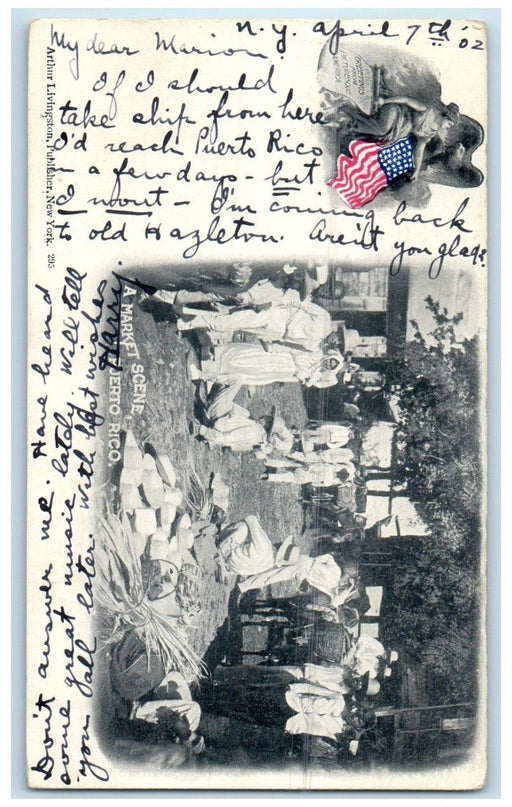 N.Y. April 7th '02
My dear Marion:
If I should
take ship from here
I'd reach Puerto Rico
in a few days - but
I wont - I'm coming back
to old Hazleton. Aren't you glad?
Don't answer me. Have heard
some great music lately. Will tell
you all later. With best wishes
Harry.
Arthur Livingston, Publisher, New York. 295
GREETINGS
FROM
PICTURESQUE
AMERICA
A MARKET SCENE -
PUERTO RICO